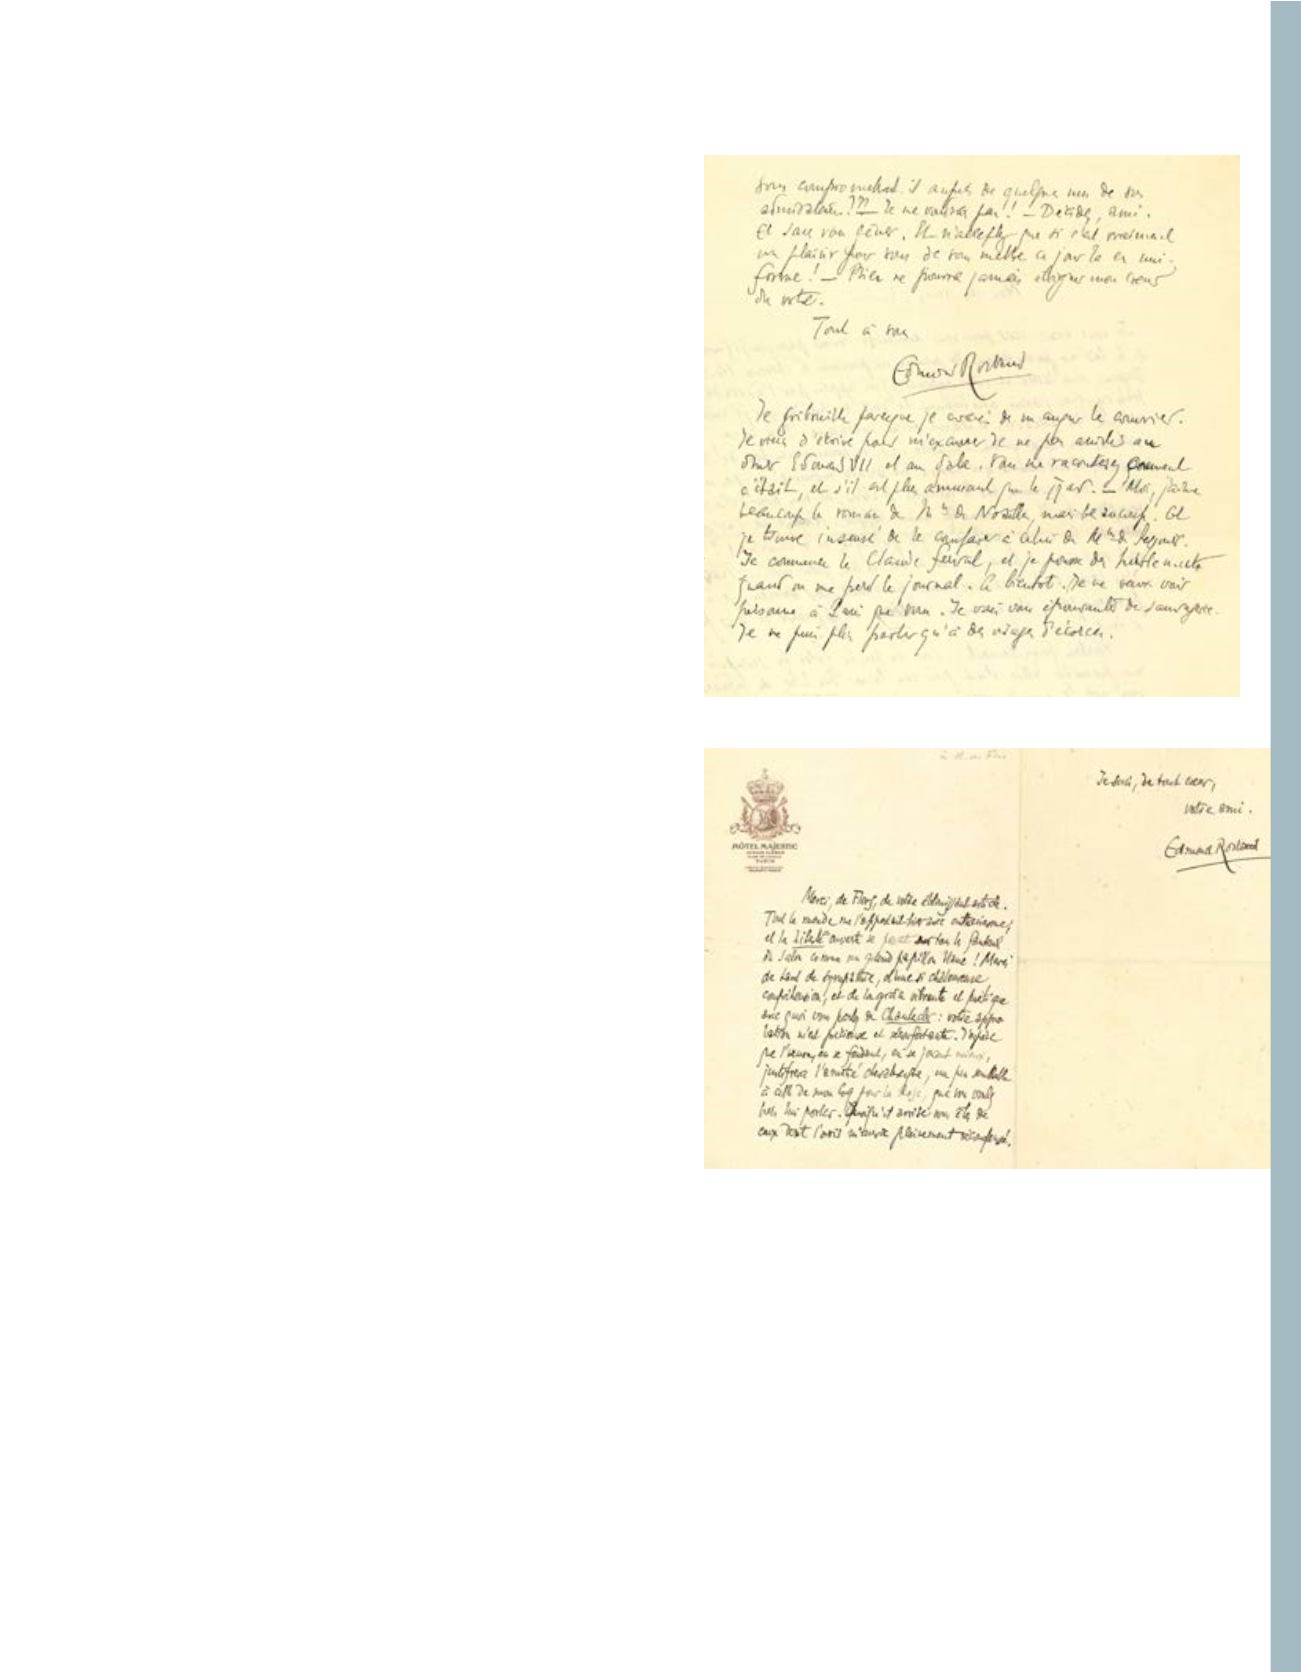 vous compromettrait-il auprès de quelques uns de vos
admirateurs ??? — Je ne voudrais pas ! — Décidez, ami.
Et sans vous gêner. Et n'acceptez que si c'est vraiment
un plaisir pour vous de vous mettre ce jour là en uni-
forme ! — Rien ne pourra jamais éloigner mon cœur
du vôtre.
Tout à vous
Edmond Rostand
Je gribouille parce que je de manquer le courrier.
Je viens d'écrire pour m'excuser de ne pas assister au
dîner Edouard VII et au gala. Vous me raconterez comment
c'était, et s'il est plus amusant que le Tzar. — Moi, j'aime
beaucoup le roman de Mme de Noailles, mais beaucoup ! Et
je trouve insensé de le comparer à celui de Mme de
Je commence le Claude Ferval, et je pousse des hurlements
quand on me perd le journal. A bientôt. Je ne veux voir
personne à que vous. Je vais vous épouvanter de sauvagerie.
Je ne puis plus parler qu'à des visages d'écorces.
à M. de Flers
HÔTEL MAJESTIC
PARIS
Merci, de Flers, de votre article.
Tout le monde me l'apportait hier soir
et la Liberté ouverte se sur tous les fauteuils
du salon comme un grand papillon blanc ! Merci
de tant de sympathie, d'une si chaleureuse
compréhension, et de la grâce vibrante et poétique
avec quoi vous parlez de Chantecler : votre appro-
bation m'est précieuse et réconfortante. J'espère
que l'œuvre, en se fondant, en se jouant mieux,
justifiera l'amitié chevaleresque, un peu semblable
à celle de mon Coq pour la Rose, que vous voulez
bien lui porter. Quoiqu'il arrive vous êtes de
ceux dont l'avis m'aura pleinement récompensé.
Je suis, de tout cœur,
votre ami.
Edmond Rostand